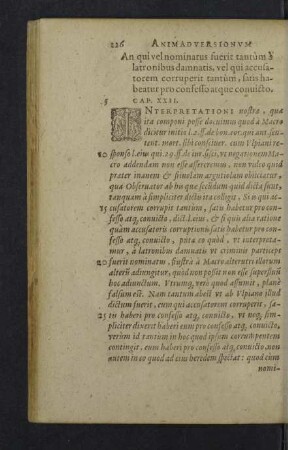 226 ANIMADVERSIONVM
An qui vel nominatus fuerit tantùm à
latronibus damnatis, vel qui accusa-
torem corruperit tantùm, satis ha-
beatur pro confesso atque conuicto.
5 CAP. XXII.
INTERPRETATIONI nostra, qua
ita componi posse docuimus quod à Macro
dicitur initio l. 2. ff. de bon. eor. qui ant. sen-
tent. mort. sibi consciuer. cum Vlpiani re-
10 sponso l. eius qui 29. ff. de iur. fisci, vt negationem Ma-
cro addendam non esse assereremus, non video quid
præter inanem & simulatam argutulam obijciatur,
quæ Obseruator ab hoc que secūdum quid dicta sunt,
tanquam à simpliciter dictis ita colligit, Si is qui ac-
15 cusatorem corrupit tantùm, satis habetur pro con-
fesso atq, conuicto, dict. l. eius, & si quis alia ratione
quàm accusatoris corruptionis satis habetur pro con-
fesso atq, conuicto, puta eo quòd, vt interpreta-
mur, à latronibus damnatis vt criminis particeps
20 fuerit nominatus, frustrà à Macro alterutri illorum
alterū adiungitur, quid non possit non esse superfluū
hoc adiunctum. Vtrumq, verò quod assumit, planè
falsum est. Nam tantum abest vt ab Vlpiano illud
dictum fuerit, eum qui accusatorem corruperit, sa-
25 tis haberi pro confesso atq, conuicto, vt neq, sim-
pliciter dixerit haberi eum pro confesso atq, conuicto,
verùm id tantùm in hoc quod ipsum corrumpentem
contingit, eum haberi pro confesso atq, conuicto, non
autem in eo quod ad eius heredem spectat: quod eius
nomi-